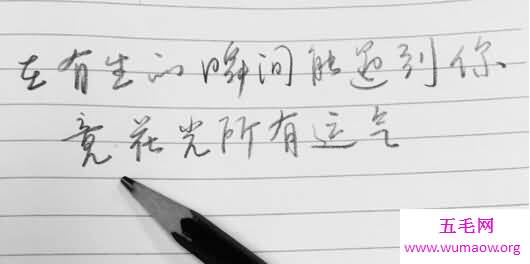 在有生的瞬间能遇到你
竟花光所有运气
五毛网
www.wumaow.org